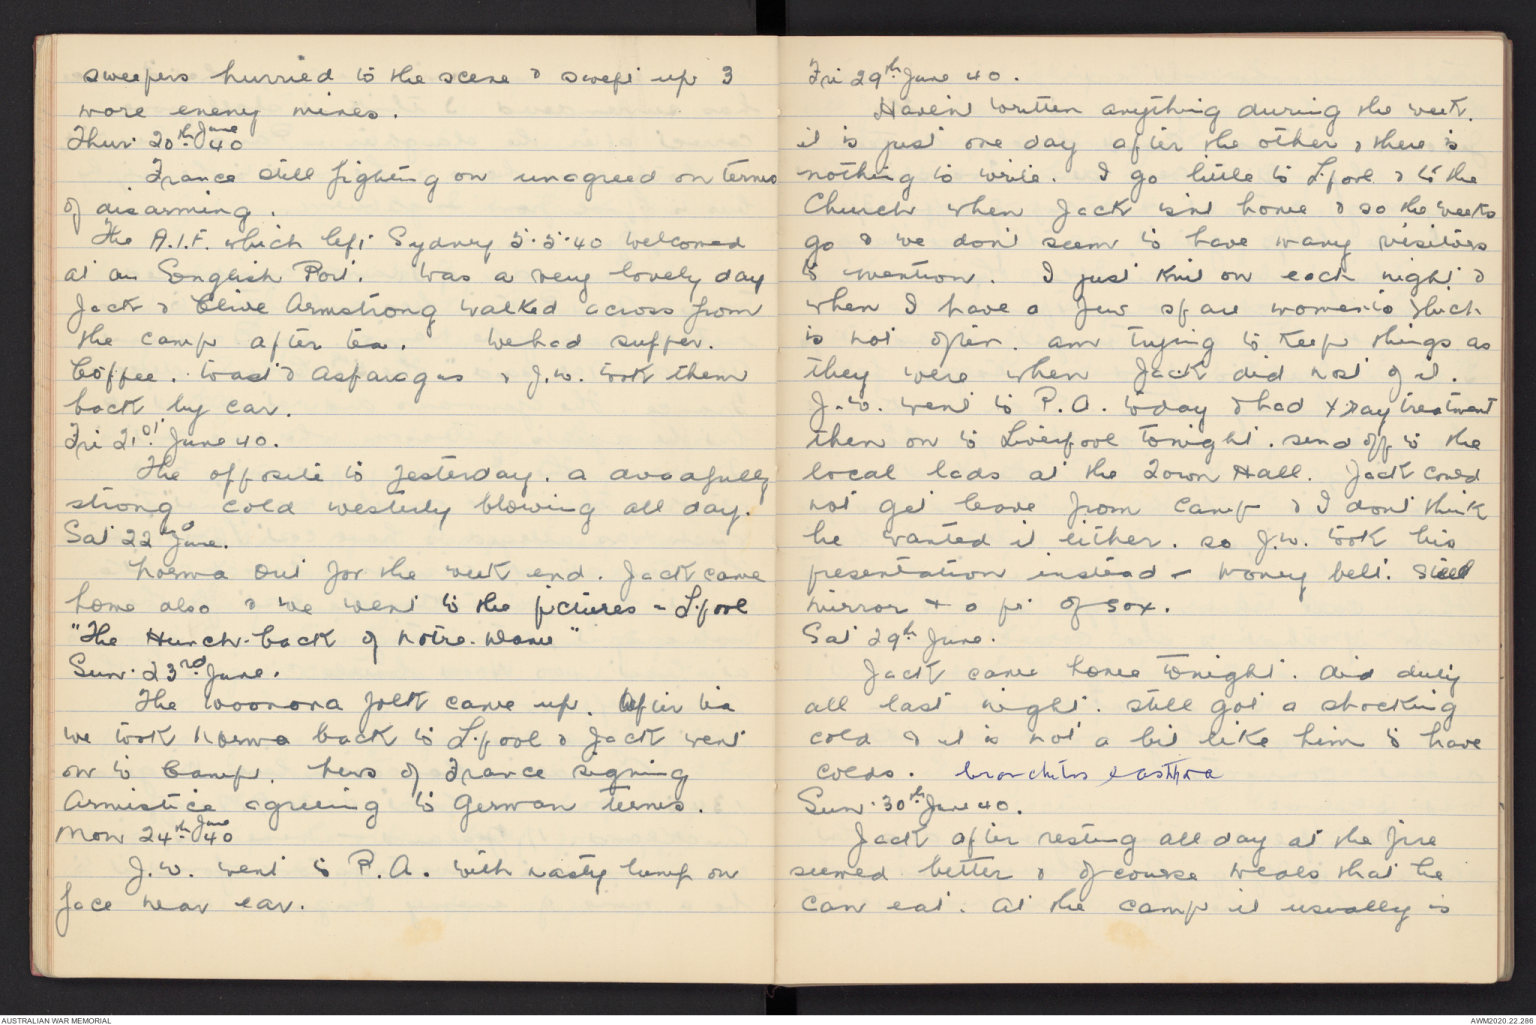 sweepers hurried to the scene & swept up 3
more enemy mines.
Thur 20th June 40
France still fighting on unagreed on terms
of disarming.
The A.I.F. which left Sydney 5.5.40 welcomed
at an English Port. Was a very lovely day
Jack & Clive Armstrong walked across from
the camp after tea. We had supper.
Coffee. toast & asparagus & J.W. took them
back by car.
Fri 21st June 40.
The opposite to yesterday. a
strong cold westerly blowing all day.
Sat 22nd June.
Norma out for the week end. Jack came
home also & we went to the pictures - L.pool
"The Hunch-back of Notre-Dame"
Sun. 23rd June.
The Woonona folk came up. After tea
we took Norma back to L.pool & Jack went
on to Camp. News of France signing
Armistice agreeing to German terms.
Mon 24th June 40
J.W. went to P.A. with nasty lump on
face near ear.
Fri 29th June 40.
Haven't written anything during the week.
it is just one day after the other & there is
nothing to write. I go little to L.pool & to the
Church when Jack isn't home & so the weeks
go & we don't seem to have many visitors
to mention. I just knit on each night &
when I have a few spare moments which
is not often. am trying to keep things as
they were when Jack did not go it.
J.W. went to P.A. today & had x ray treatment
then on to Liverpool tonight. send off to the
local lads at the Town Hall. Jack could
not get leave from Camp & I don't think
he wanted it either. so J.W. took his
presentation instead - money belt. Steel
mirror + a pr of sox.
Sat 29th June.
Jack came home tonight. did duty
all last night. still got a shocking
cold & it is not a bit like him to have
colds. bronchitis & asthma
Sun. 30th June 40.
Jack after resting all day at the fire
seemed better & of course meals that he
can eat. At the camp it usually is
AUSTRALIAN WAR MEMORIAL
AWM2020.22.286